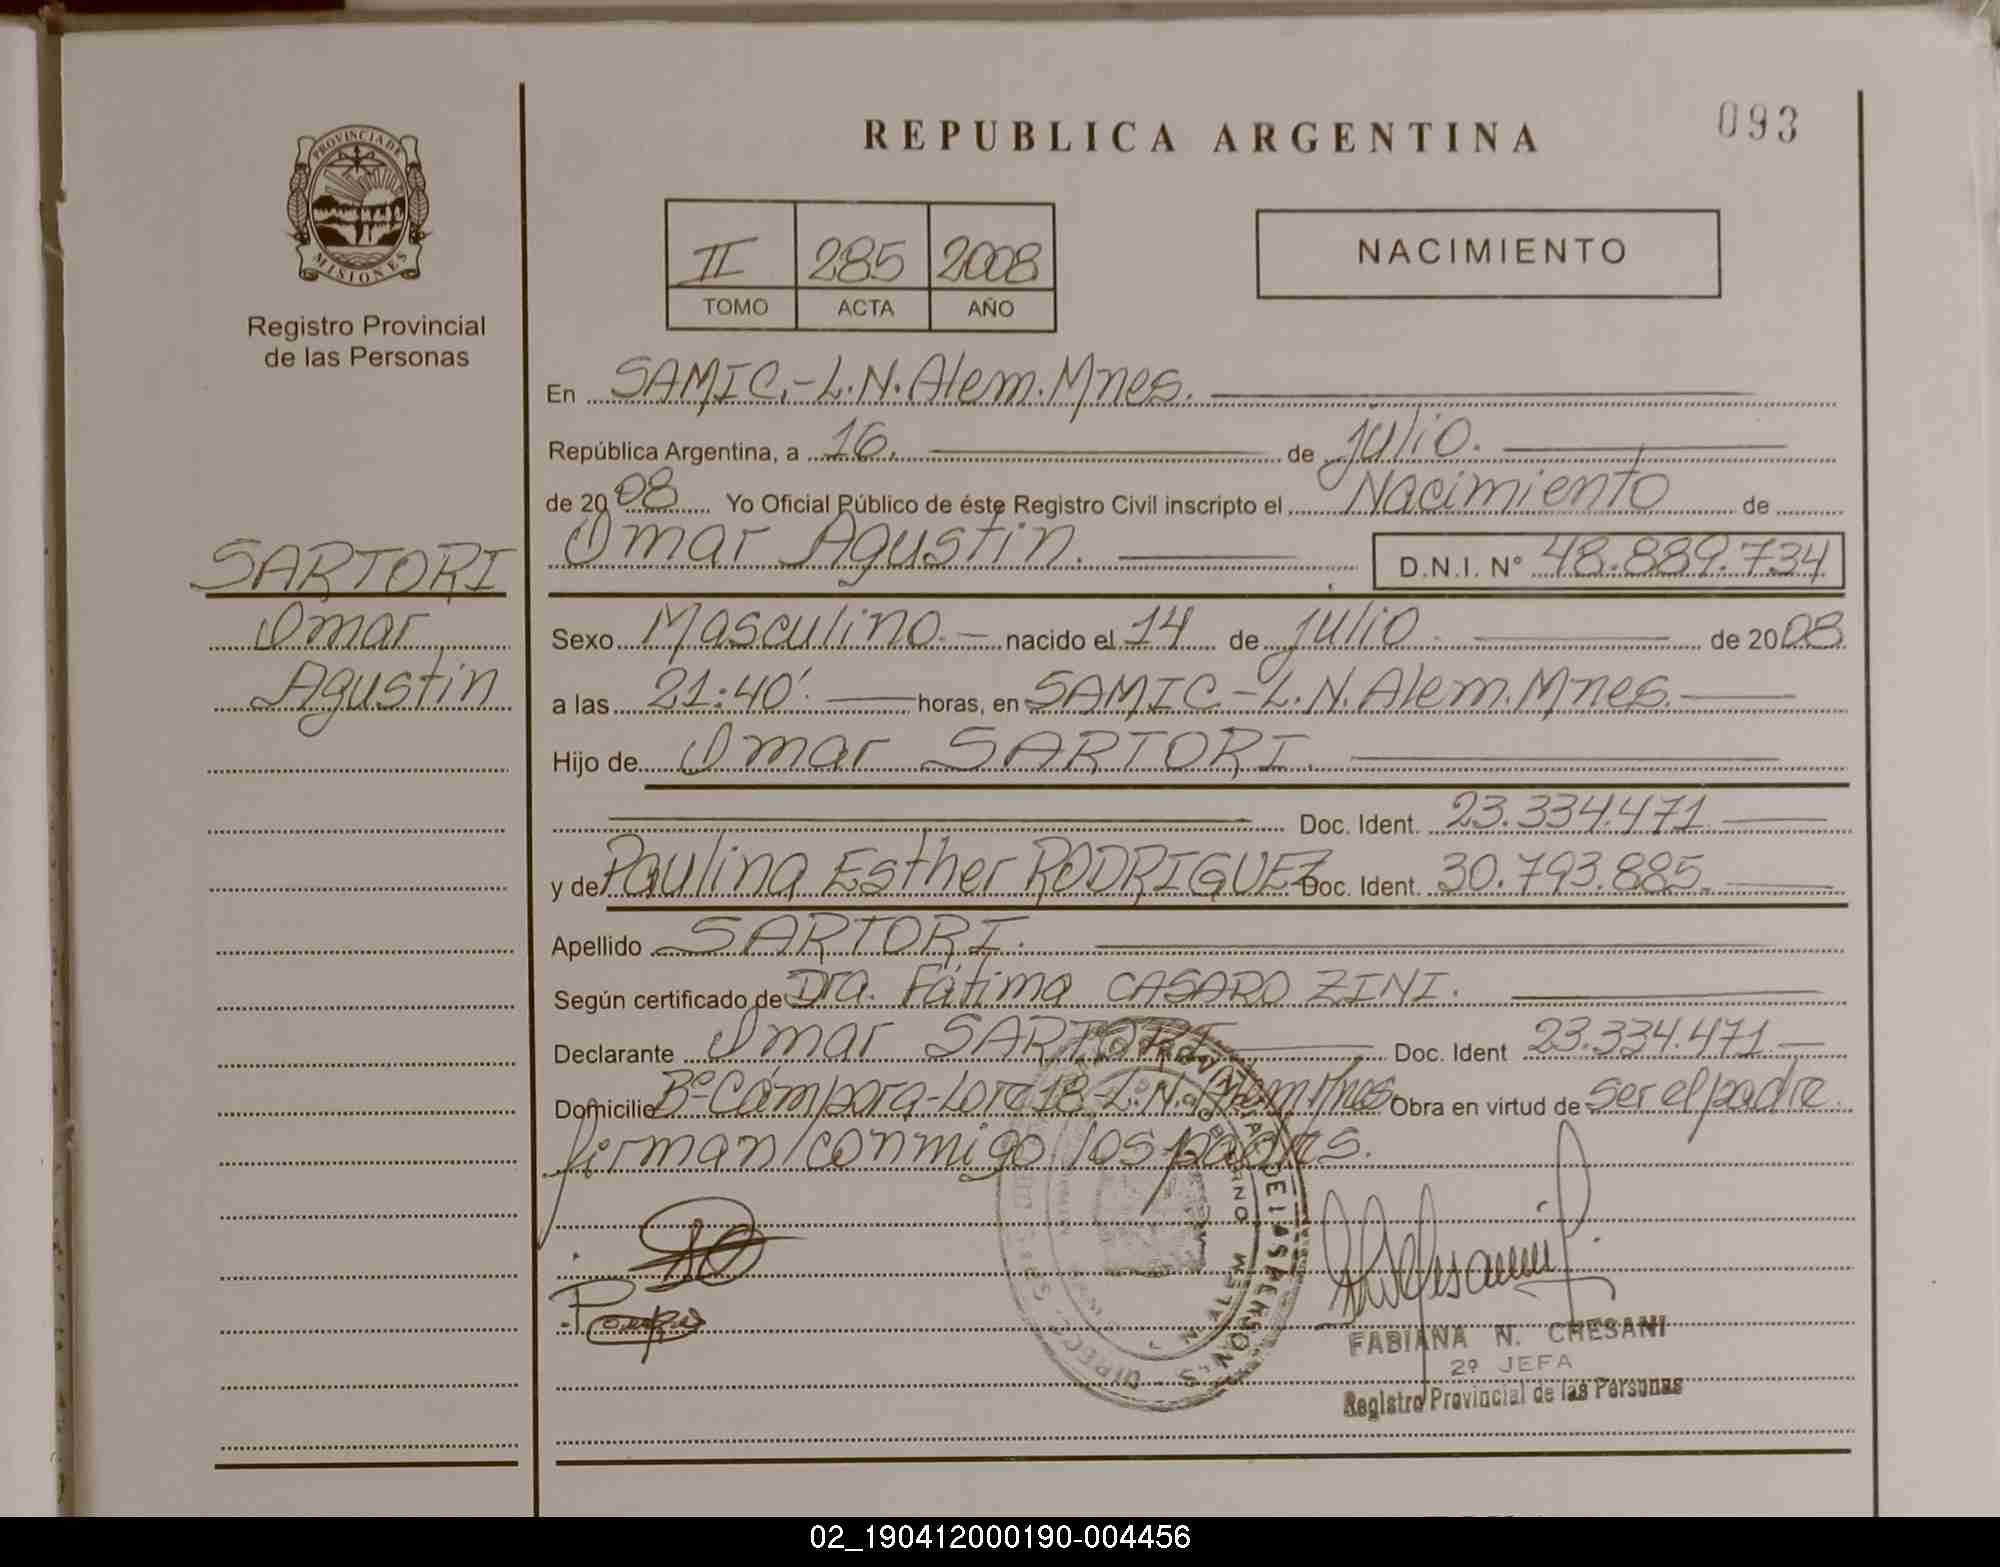 REPUBLICA ARGENTINA
093
PROVINCIA DE
MISIONES
Registro Provincial
de las Personas
II 285 2008
TOMO ACTA AÑO
NACIMIENTO
En SAMIC.-L.N.Alem.Mnes.
República Argentina, a 16. de julio.
de 2008 Yo Oficial Público de éste Registro Civil inscripto el Nacimiento de
Omar Agustin. D.N.I. N° 48.889.734
SARTORI
Omar
Agustin
Sexo Masculino.- nacido el 14 de julio de 2008
a las 21:40'. horas, en SAMIC-L.N.Alem.Mnes.
Hijo de Omar SARTORI.
Doc. Ident. 23.334.471
y de Paulina Esther RODRIGUEZ Doc. Ident. 30.793.885.
Apellido SARTORI.
Según certificado de Dra. Fátima CASARO ZINI.
Declarante Omar SARTORI Doc. Ident 23.334.471
Domicilio B°Cámpora-Lote 18-L.N.Alem Mnes Obra en virtud de ser el padre
firman conmigo los padres.
DE LAS PERSONAS
FABIANA N. CHESANI
2º JEFA
Registro Provincial de las Personas
02_190412000190-004456